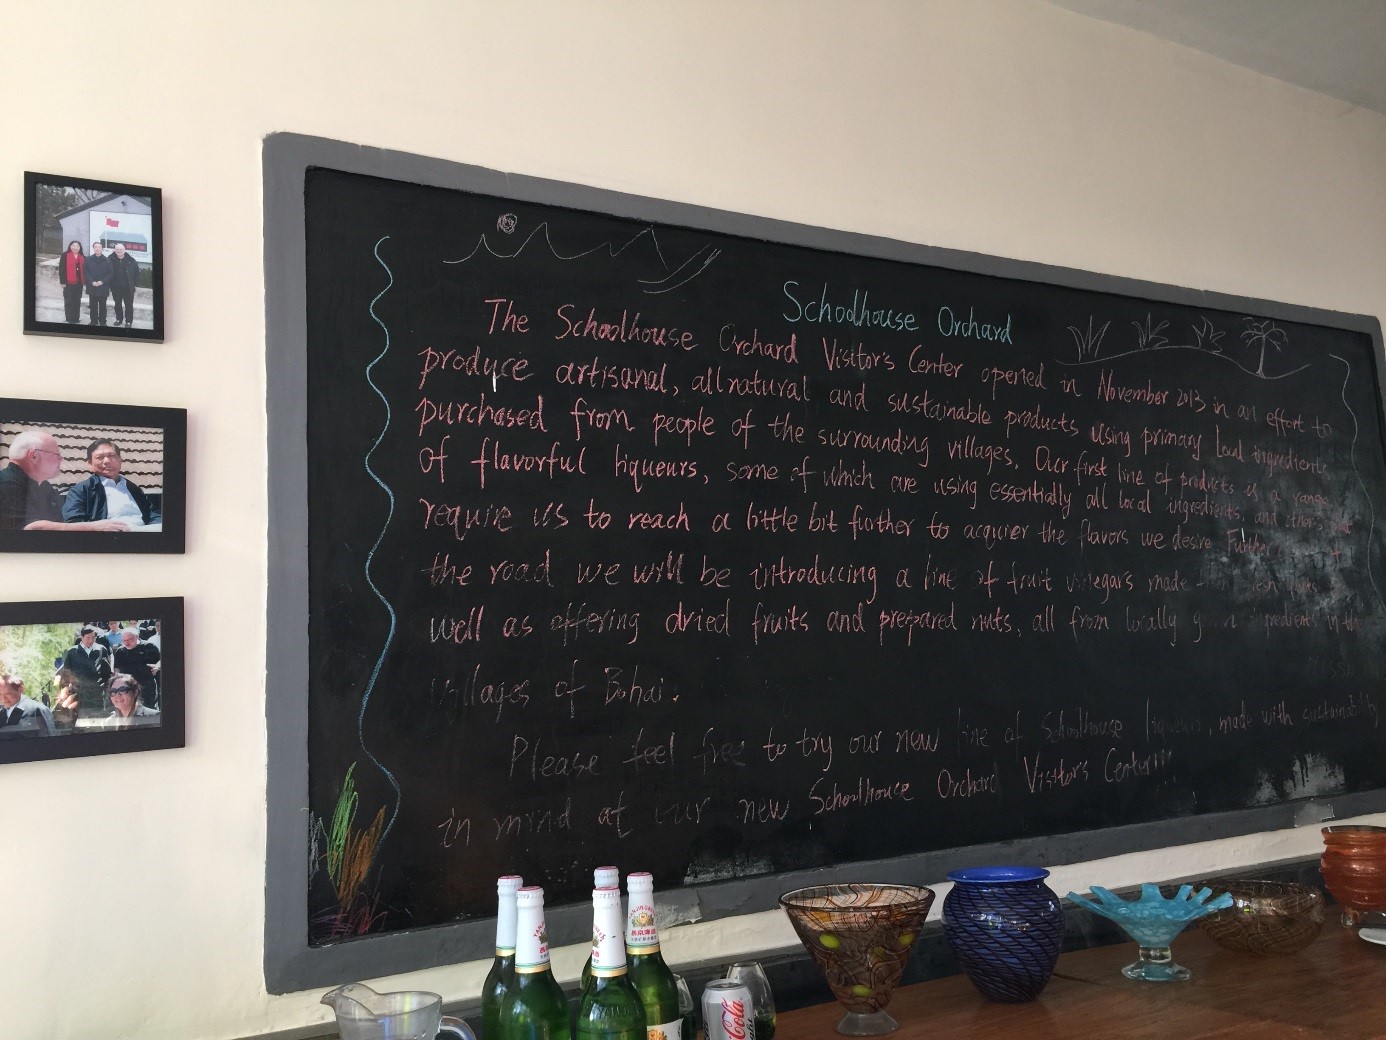 Schoolhouse Orchard
The Schoolhouse Orchard Visitor's Center opened in November 2013 in an effort to
produce artisanal, all natural and sustainable products using primary local ingredients
purchased from people of the surrounding villages. Our first line of products is a range
of flavorful liqueurs, some of which are using essentially all local ingredients, and others
require us to reach a little bit further to acquier the flavors we desire. Further
the road we will be introducing a line of fruit vinegars made
well as offering dried fruits and prepared nuts, all from locally ingredients in the
villages of Bohai.
Please feel free to try our new line of Schoolhouse liqueurs, made with sustainability
in mind at our new Schoolhouse Orchard Visitor's Center!!!
Coca-Cola